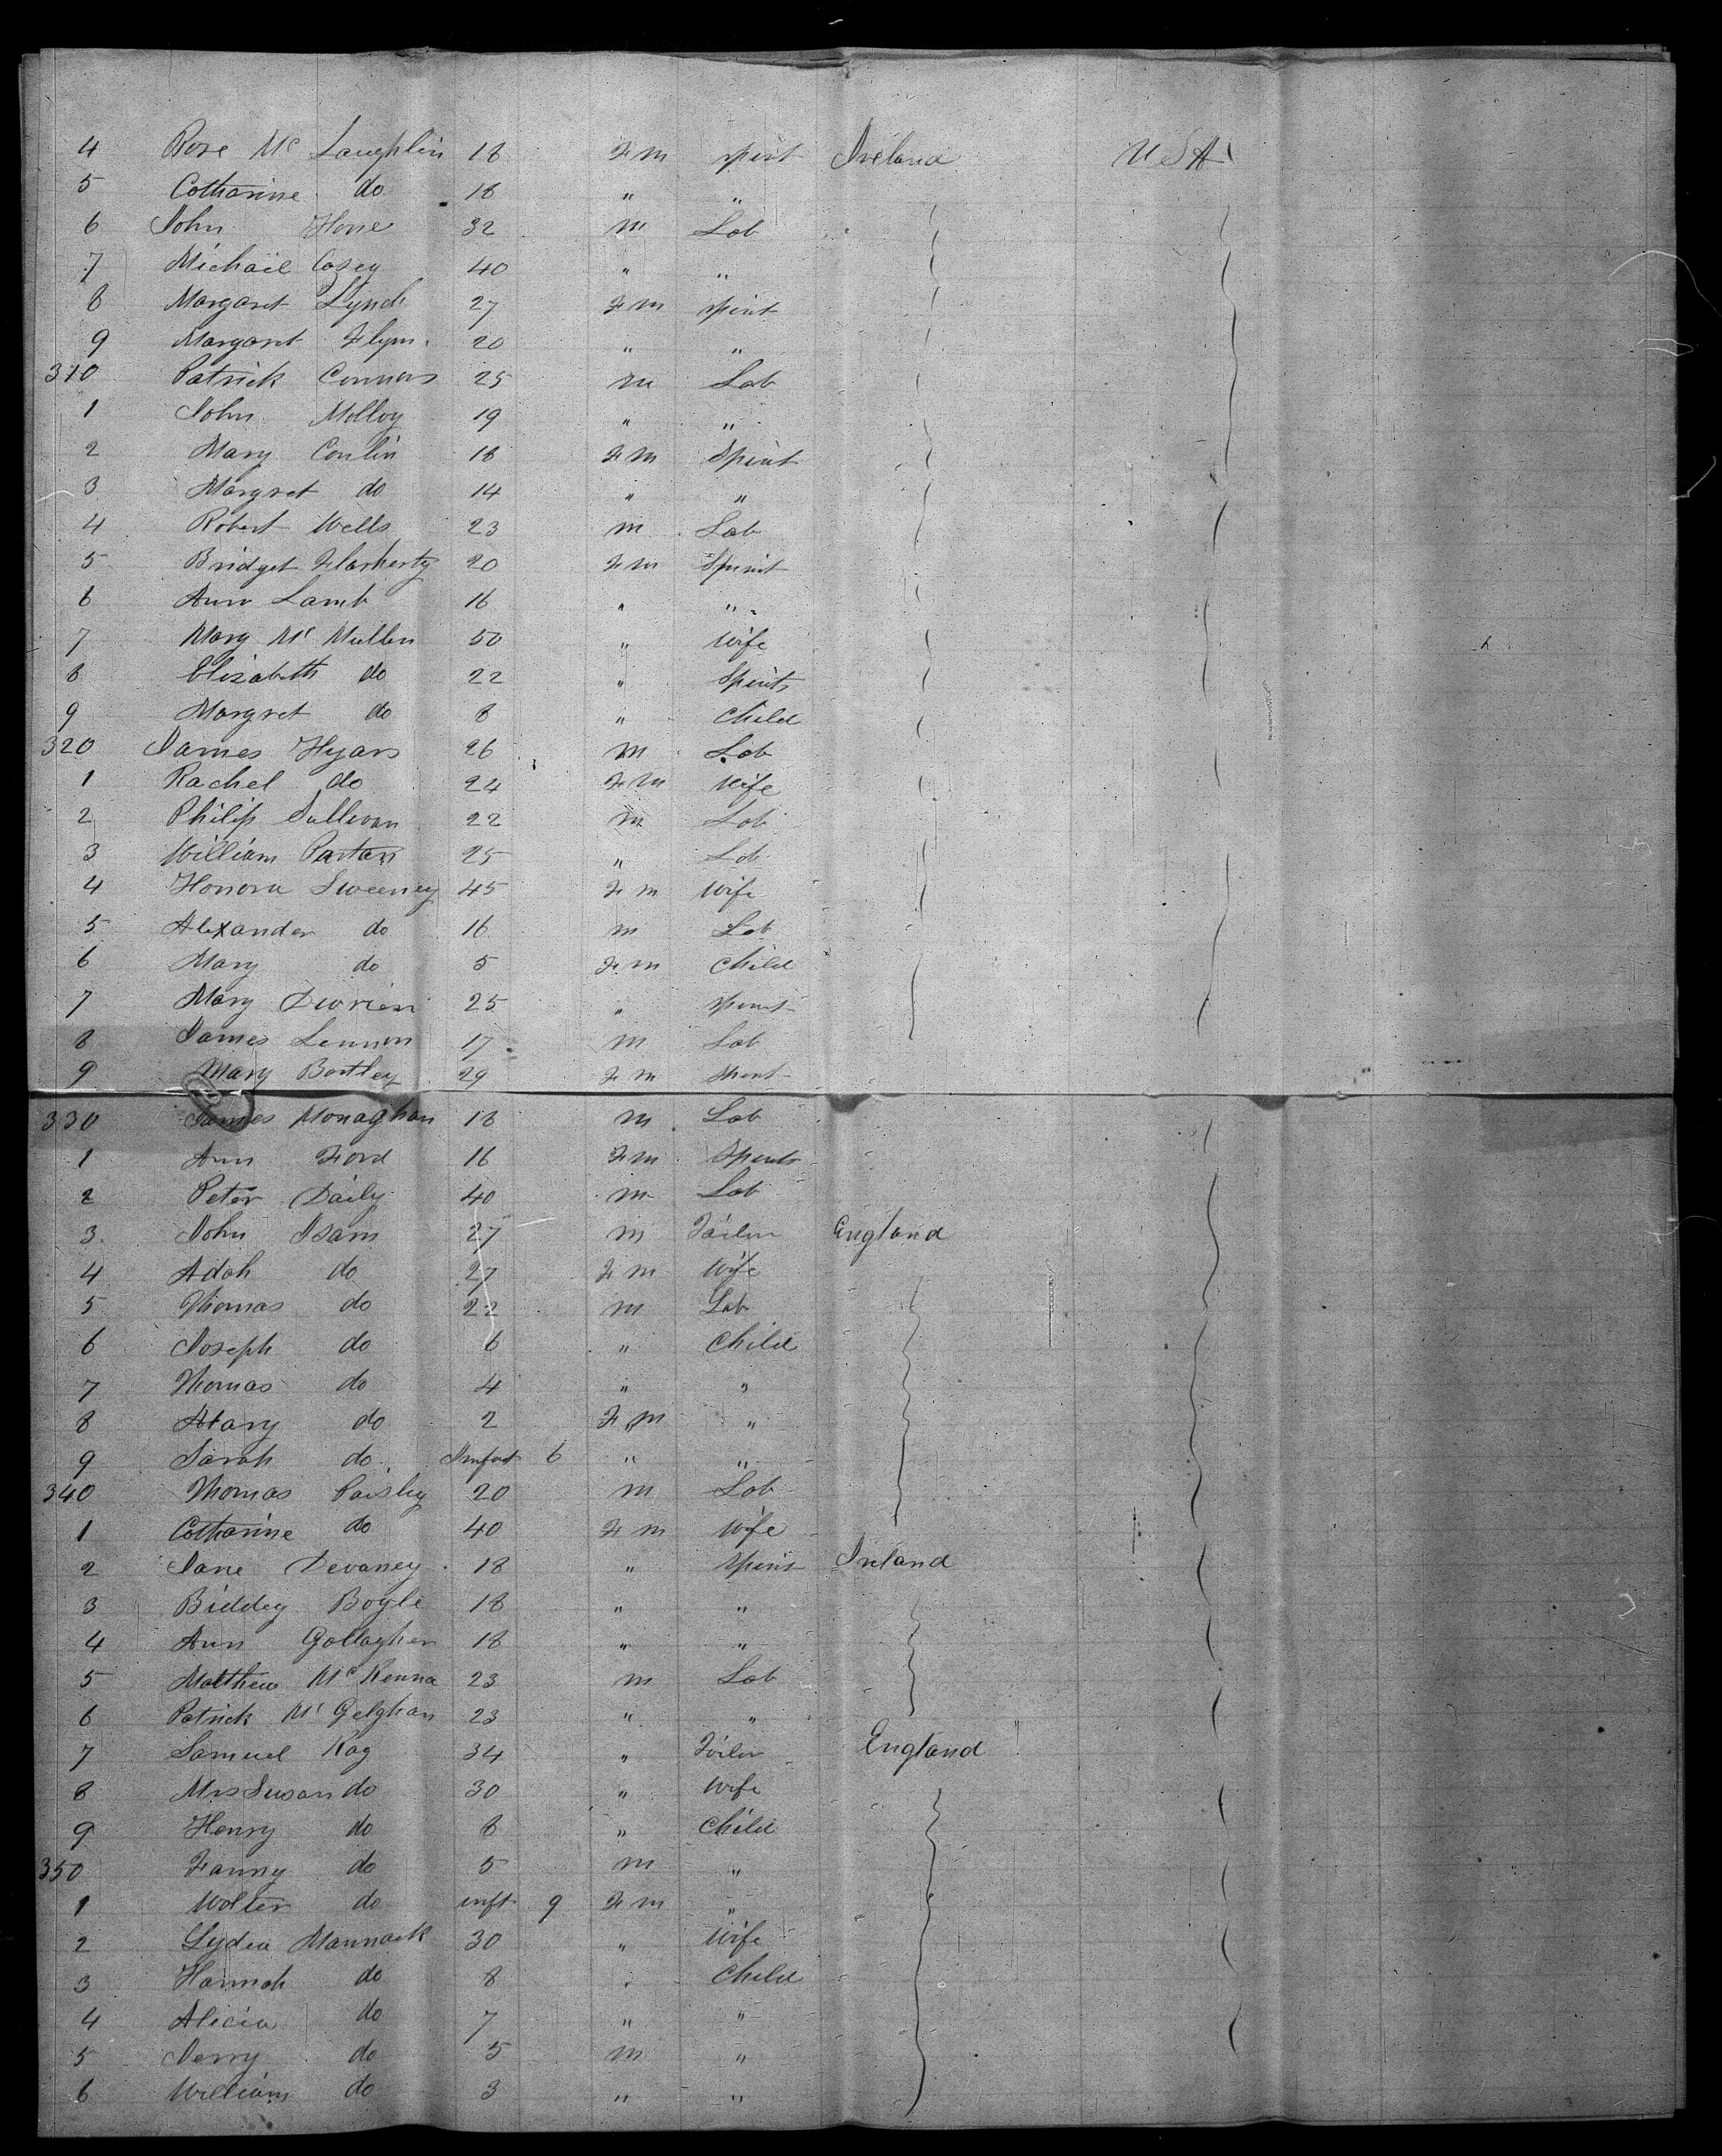 4 Rose Mc Laughlin 18 Fm spint Ireland USA
5 Catharine do 18 " "
6 John Hone 32 m Lab
7 Michael Casey 40 " "
8 Margaret Lynch 27 Fm spint
9 Margaret Flynn 20 " "
310 Patrick Connors 25 m Lab
1 John Molloy 19 " "
2 Mary Conlin 18 Fm Spint
3 Margret do 14 " "
4 Robert Wells 23 m Lab
5 Bridget Flarherty 20 Fm Spinst
6 Ann Lamb 16 " "
7 Mary Mc Mullen 50 " Wife
8 Elizabeth do 22 " Spints
9 Margret do 8 " Child
320 James Hyars 26 m Lab
1 Rachel do 24 Fm Wife
2 Philip Sullivan 22 m Lab
3 William Partan 25 " Lab
4 Honora Sweeney 45 Fm Wife
5 Alexander do 16 m Lab
6 Mary do 5 Fm Child
7 Mary 25 " spinst
8 James Lennon 17 m Lab
9 Mary Bartley 29 Fm spinst
330 James Monaghan 18 m Lab
1 Ann Ford 16 Fm Spints
2 Peter Daily 40 m Lab
3 John Isam 27 m Tailor England
4 Adah do 27 Fm Wife
5 Thomas do 22 m Lab
6 Joseph do 6 " Child
7 Thomas do 4 " "
8 Mary do 2 Fm "
9 Sarah do Infant 6 " "
340 Thomas Paisley 20 m Lab
1 Catharine do 40 Fm Wife
2 Jane Devaney 18 " spins Ireland
3 Biddey Boyle 18 " "
4 Ann Gallagher 18 " "
5 Matthew Mc Kenna 23 m Lab
6 Patrick Mc Gelghan 23 " "
7 Samuel Kay 34 " Tailor England
8 Mrs Susan do 30 " Wife
9 Henry do 8 " Child
350 Fanny do 5 m "
1 Walter do inft 9 Fm "
2 Lydia Mannack 30 " Wife
3 Hannah do 8 " Child
4 Alicia do 7 " "
5 Jerry do 5 m "
6 William do 3 " "